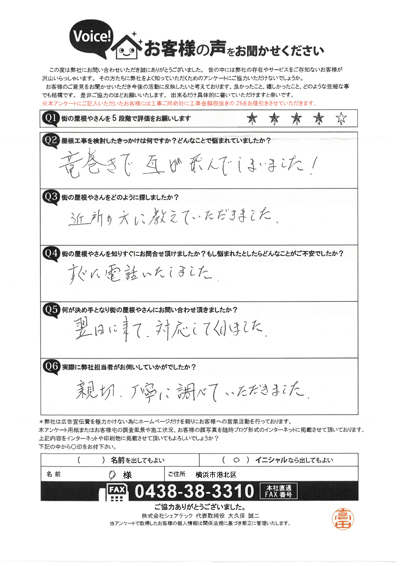 Voice!
お客様の声をお聞かせください
この度は弊社にお問い合わせいただき誠にありがとうございました。世の中には弊社の存在やサービスをご存知ないお客様が
沢山いらっしゃいます。その方たちに弊社をよく知っていただくためのアンケートにご協力いただけないでしょうか。
お客様のご意見をお聞かせいただき今後の活動に反映したいと考えております。良かったこと、嬉しかったこと、どのような些細な事
でも結構です。是非ご協力のほどお願いいたします。出来るだけ具体的に書いていただけますと幸いです。
※本アンケートにご記入いただいたお客様には工事ご用命時に工事金額総計きの2%をお値引きさせていただきます。
Q1 街の屋根やさんを5段階で評価お願いします ★ ★ ★ ★ ☆
Q2 屋根工事を検討したきっかけは何ですか?どんなことで悩まれていましたか?
竜巻きで瓦が飛んでしまいました!
Q3 街の屋根やさんをどのように探しましたか?
近所の方に教えていただきました。
Q4 街の屋根やさんを知りすぐにお問合せ頂けましたか?もし悩まれたとしたらどんなことがご不安でしたか?
すぐに電話いたしました。
Q5 何が決め手となり街の屋根やさんにお問い合わせ頂きましたか?
翌日に来て、対応して頂けました。
Q6 実際に弊社担当者がお伺いしていかがでしたか?
親切、丁寧に調べていただきました。
*弊社は広告宣伝費を極力かけない為にホームページだけを頼りにお客様への営業活動を行っております。
本アンケート用紙またはお客様宅の調査風景や施工状況、お客様の顔写真を随時ブログ形式のインターネットに掲載させて頂いております。
上記内容をインターネットや印刷物に掲載させて頂いてもよろしいでしょうか?
下記の中から〇印をお付下さい。
( )名前を出してもよい (○)イニシャルなら出してもよい
名前 様 ご住所 横浜市港北区
FAX 0438-38-3310 本社直通 FAX番号
ご協力ありがとうございました。
株式会社シェアテック 代表取締役 大久保 誠二
当アンケートで取得したお客様の個人情報は関係法規に基づき厳正に管理いたします。